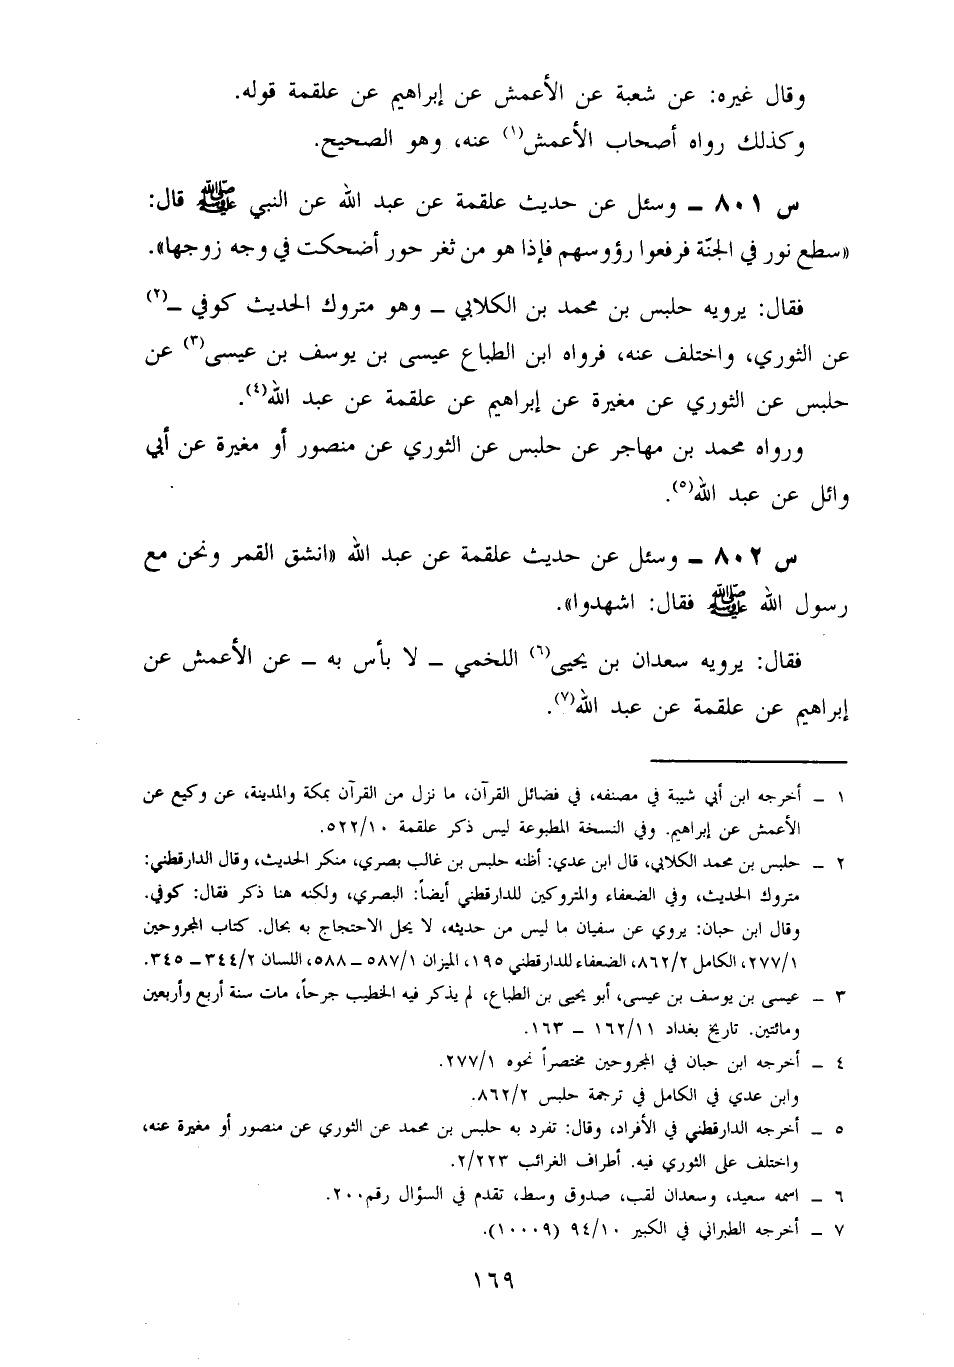 وقال غيره: عن شعبة عن الأعمش عن إبراهيم عن علقمة قوله.
وكذلك رواه أصحاب الأعمش(١) عنه، وهو الصحيح.
س ٨٠١ ــ وسئل عن حديث علقمة عن عبد الله عن النبي ﷺ قال:
«سطع نور في الجنّة فرفعوا رؤوسهم فإذا هو من ثغر حور أضحكت في وجه زوجها».
فقال: يرويه حلبس بن محمد بن الكلابي ــ وهو متروك الحديث كوفي ــ(٢)
عن الثوري، واختلف عنه، فرواه ابن الطباع عيسى بن يوسف بن عيسى(٣) عن
حلبس عن الثوري عن مغيرة عن إبراهيم عن علقمة عن عبد الله(٤).
ورواه محمد بن مهاجر عن حلبس عن الثوري عن منصور أو مغيرة عن أبي
وائل عن عبد الله(٥).
س ٨٠٢ ــ وسئل عن حديث علقمة عن عبد الله «انشق القمر ونحن مع
رسول الله ﷺ فقال: اشهدوا».
فقال: يرويه سعدان بن يحيى(٦) اللخمي ــ لا بأس به ــ عن الأعمش عن
إبراهيم عن علقمة عن عبد الله(٧).
١ ــ أخرجه ابن أبي شيبة في مصنفه، في فضائل القرآن، ما نزل من القرآن بمكة والمدينة، عن وكيع عن
الأعمش عن إبراهيم. وفي النسخة المطبوعة ليس ذكر علقمة ٥٢٢/١٠.
٢ ــ حلبس بن محمد الكلابي، قال ابن عدي: أظنه حلبس بن غالب بصري، منكر الحديث، وقال الدارقطني:
متروك الحديث، وفي الضعفاء والمتروكين للدارقطني أيضاً: البصري، ولكنه هنا ذكر فقال: كوفي.
وقال ابن حبان: يروي عن سفيان ما ليس من حديثه، لا يحل الاحتجاج به بحال. كتاب المجروحين
٢٧٧/١، الكامل ٨٦٢/٢، الضعفاء للدارقطني ١٩٥، الميزان ٥٨٧/١ ــ ٥٨٨، اللسان ٣٤٤/٢ ــ ٣٤٥.
٣ ــ عيسى بن يوسف بن عيسى، أبو يحيى بن الطباع، لم يذكر فيه الخطيب جرحاً، مات سنة أربع وأربعين
ومائتين. تاريخ بغداد ١٦٢/١١ ــ ١٦٣.
٤ ــ أخرجه ابن حبان في المجروحين مختصراً نحوه ٢٧٧/١.
وابن عدي في الكامل في ترجمة حلبس ٨٦٢/٢.
٥ ــ أخرجه الدارقطني في الأفراد، وقال: تفرد به حلبس بن محمد عن الثوري عن منصور أو مغيرة عنه،
واختلف على الثوري فيه. أطراف الغرائب ٢/٢٢٣.
٦ ــ اسمه سعيد، وسعدان لقب، صدوق وسط، تقدم في السؤال رقم ٢٠٠.
٧ ــ أخرجه الطبراني في الكبير ٩٤/١٠ (١٠٠٠٩).
١٦٩